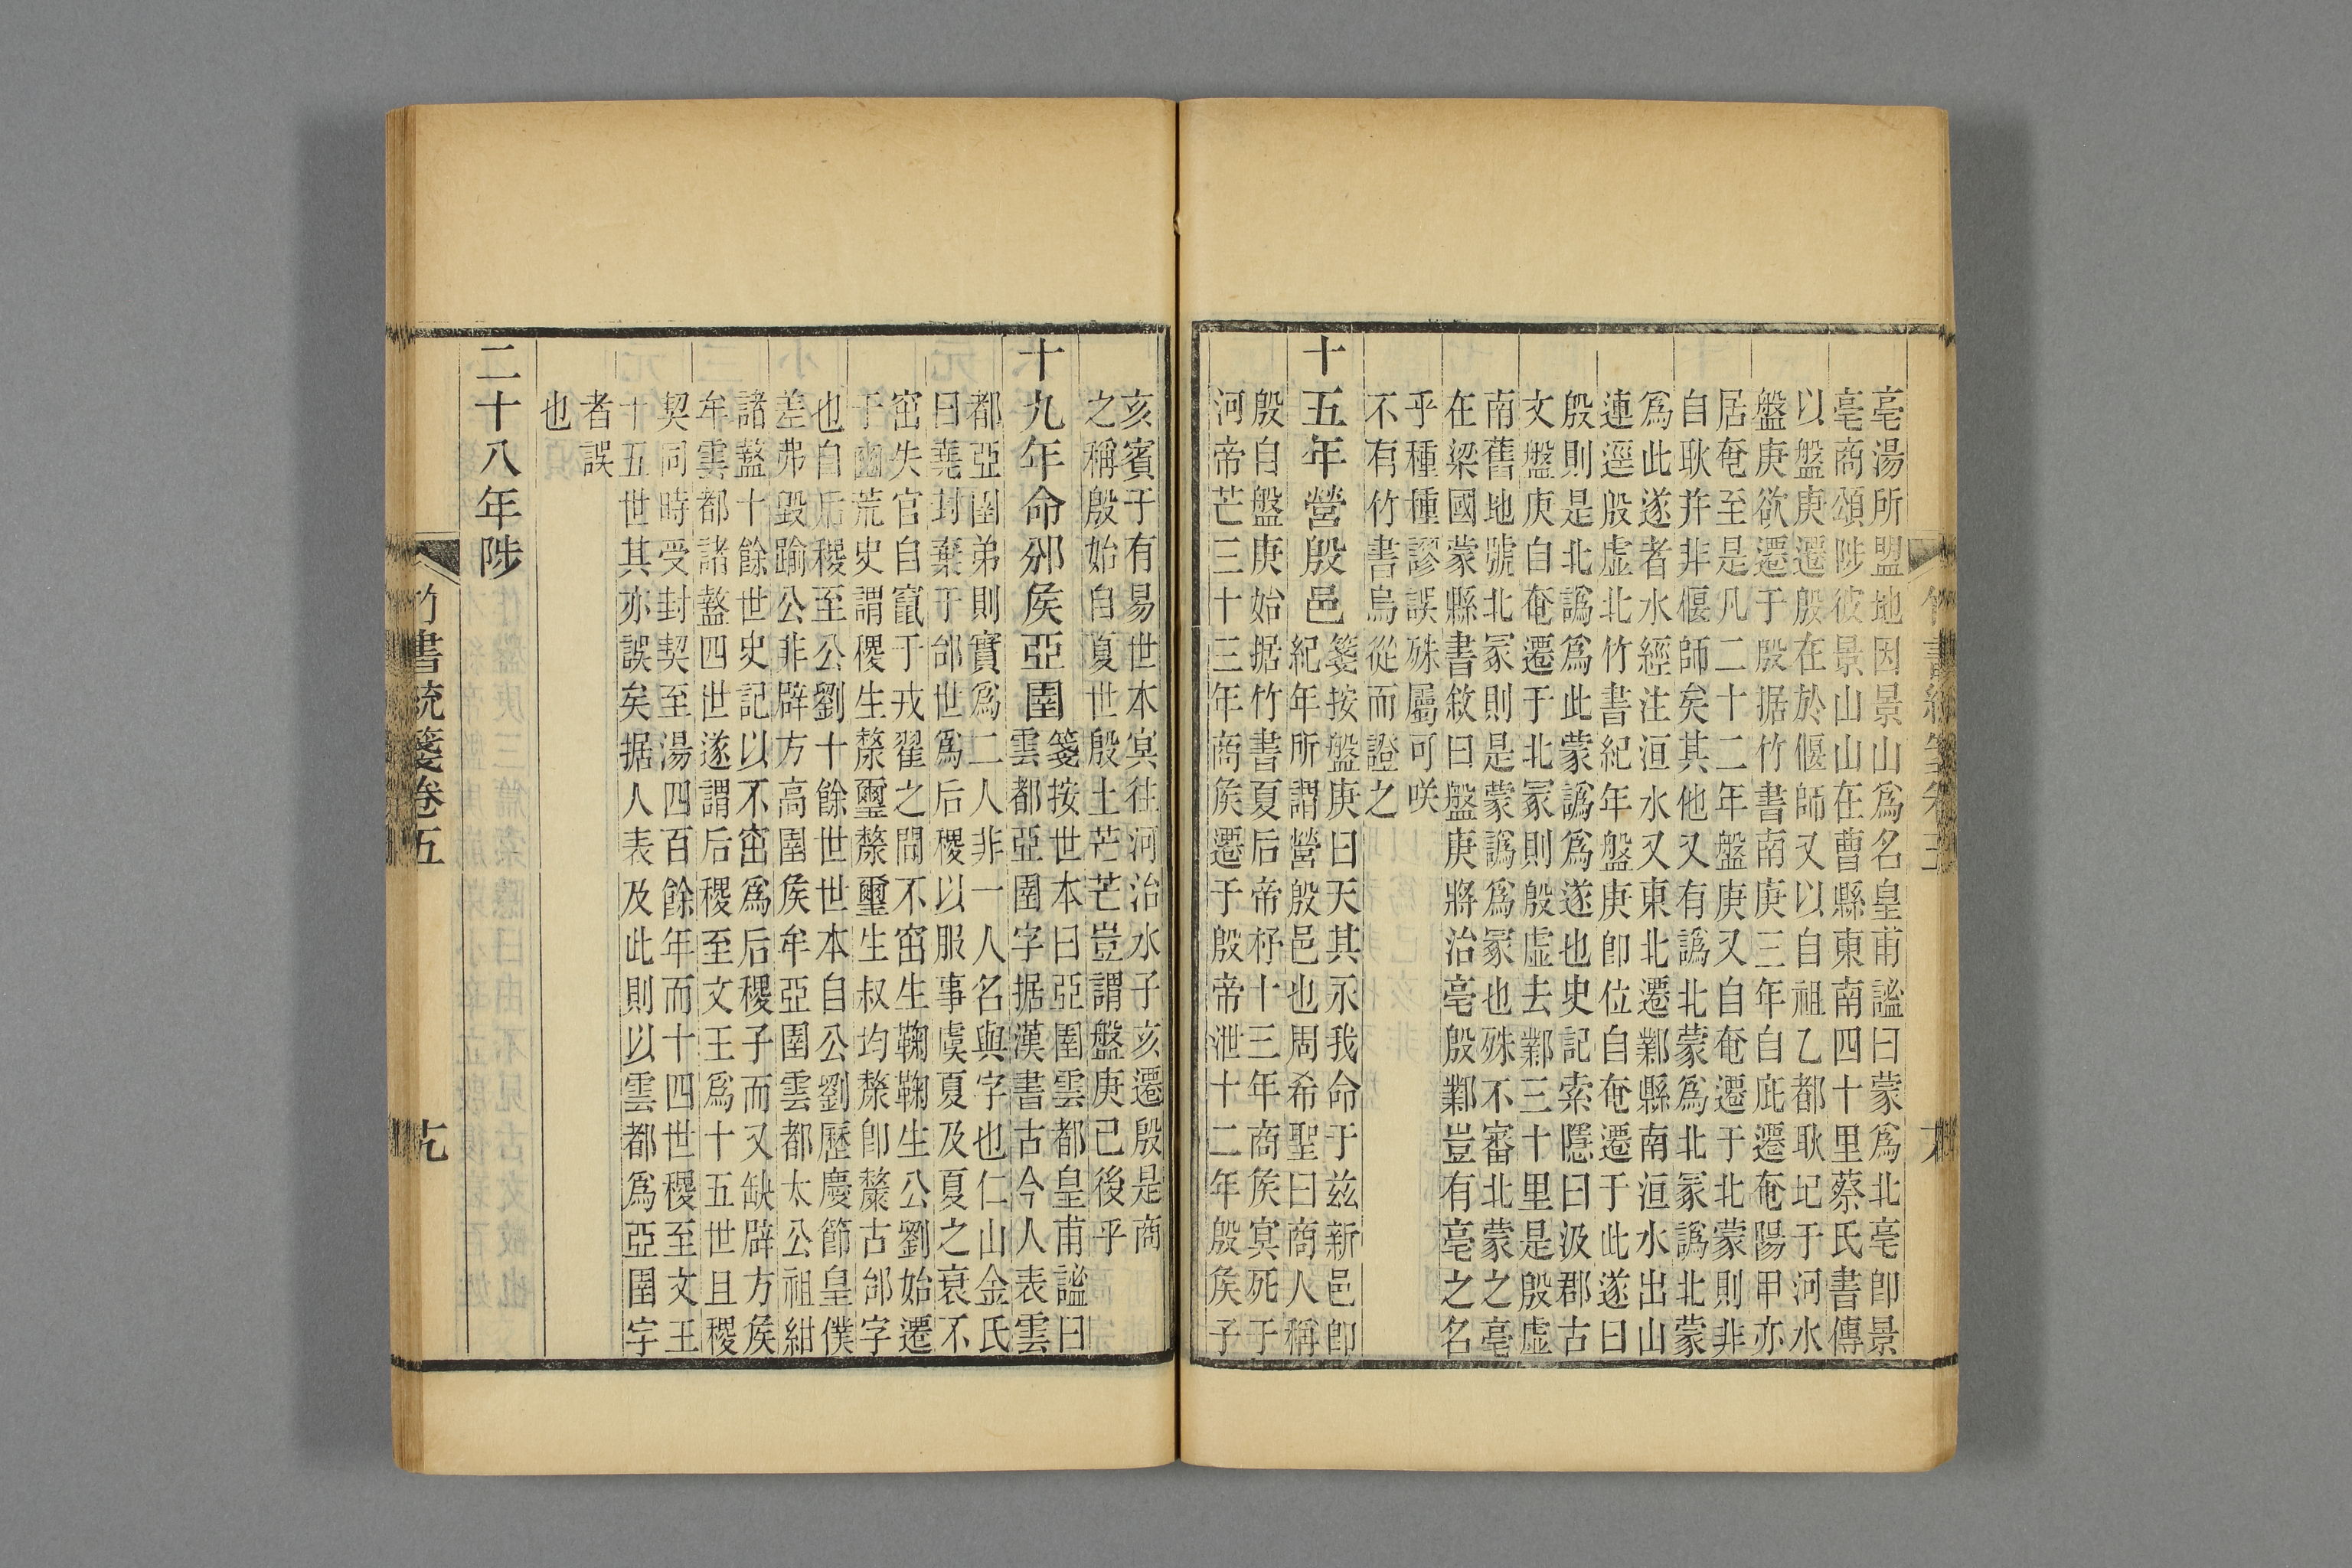 亳湯所盟地因景山爲名皇甫謐曰蒙爲北亳卽景
亳商頌陟彼景山山在曹縣東南四十里蔡氏書傳
以盤庚遷殷在於偃師又以自祖乙都耿圮于河水
盤庚欲遷于殷据竹書南庚三年自庇遷奄陽甲亦
居奄至是凡二十二年盤庚又自奄遷于北蒙則非
自耿并非偃師矣其他又有譌北蒙爲北冡譌北蒙
爲此遂者水經注洹水又東北遷鄴縣南洹水出山
連逕殷虛北竹書紀年盤庚卽位自奄遷于此遂曰
殷則是北譌爲此蒙譌爲遂也史記索隱曰汲郡古
文盤庚自奄遷于北冡則殷虛去鄴三十里是殷虛
南舊地號北冡則是蒙譌爲冡也殊不審北蒙之亳
在梁國蒙縣書敘曰盤庚將治亳殷鄴豈有亳之名
乎種種謬誤殊屬可咲
不有竹書烏從而證之
十五年營殷邑
箋按盤庚曰天其永我命于茲新邑卽
紀年所謂營殷邑也周希聖曰商人稱
殷自盤庚始据竹書夏后帝杼十三年商侯冥死于
河帝芒三十三年商侯遷于殷帝泄十二年殷侯子
亥賓于有易世本冥往河治水子亥遷殷是商
之稱殷始自夏世殷土芒芒豈謂盤庚已後乎
十九年命邠侯亞圉
箋按世本曰亞圉雲都皇甫謐曰
雲都亞圉字据漢書古今人表雲
都亞圉弟則實爲二人非一人名與字也仁山金氏
曰堯封棄于邰世爲后稷以服事虞夏及夏之衰不
窋失官自竄于戎翟之間不窋生鞠鞠生公劉始遷
于豳荒史謂稷生漦璽漦璽生叔均漦卽斄古邰字
也自后稷至公劉十餘世世本自公劉歷慶節皇僕
差弗毀踰公非辟方高圉侯牟亞圉雲都太公祖紺
諸盩十餘世史記以不窋爲后稷子而又缺辟方侯
牟雲都諸盩四世遂謂后稷至文王爲十五世且稷
契同時受封契至湯四百餘年而十四世稷至文王
十五世其亦誤矣据人表及此則以雲都爲亞圉字
者誤
也
二十八年陟
竹書統箋卷五